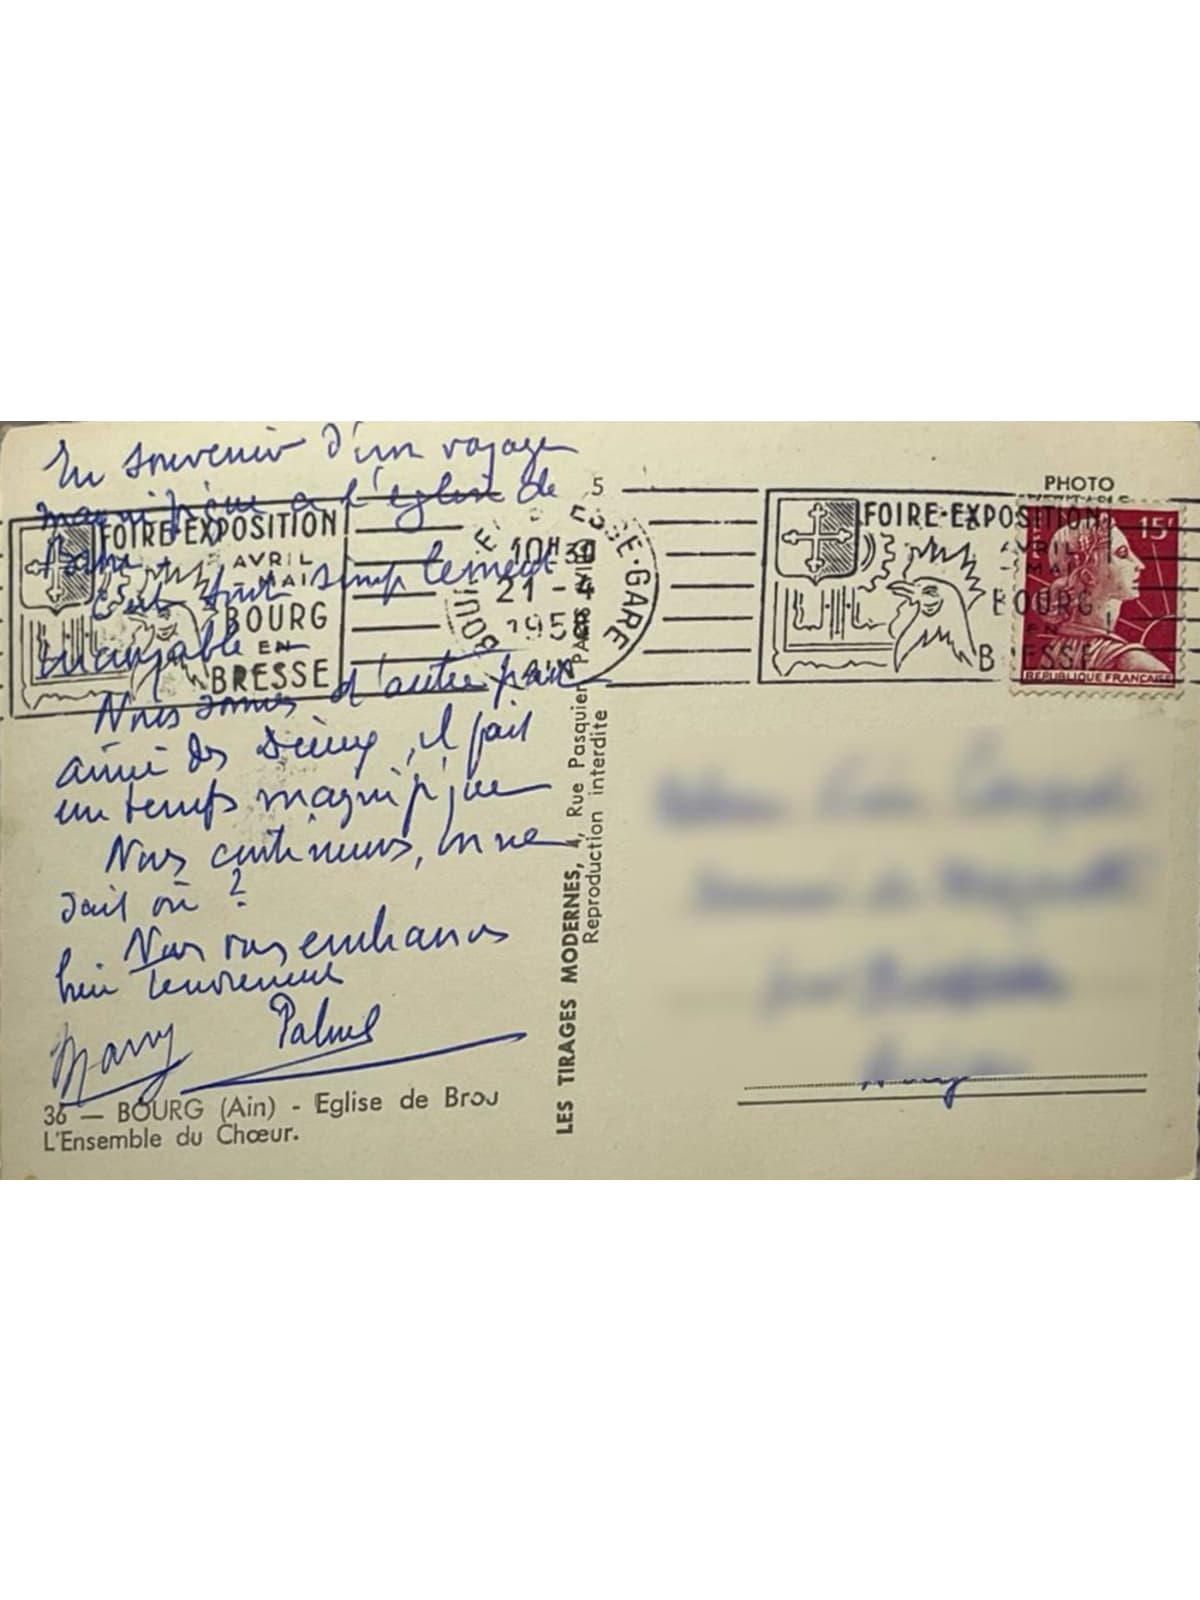 En souvenir d'un voyage
magnifique a l'église de
Brou.
C'est tout simplement
incroyable
Nous sommes d'autre part
aimé des Dieux, il fait
un temps magnifique
Nous continuons, on ne
sait où ?
Nous vous embrassons
bien tendrement
36 — BOURG (Ain) - Eglise de Brou
L'Ensemble du Chœur.
FOIRE-EXPOSITION
AVRIL
-MAI
BOURG
EN
BRESSE
10H30
21 - 4
195
AIN
GARE
5
LES TIRAGES MODERNES, 4, Rue Pasquier, PARIS VIIIe
Reproduction interdite
PHOTO
VERITABLE
FOIRE-EXPOSITION
AVRIL
-MAI
BOURG
EN
BRESSE
15f
REPUBLIQUE FRANCAISE